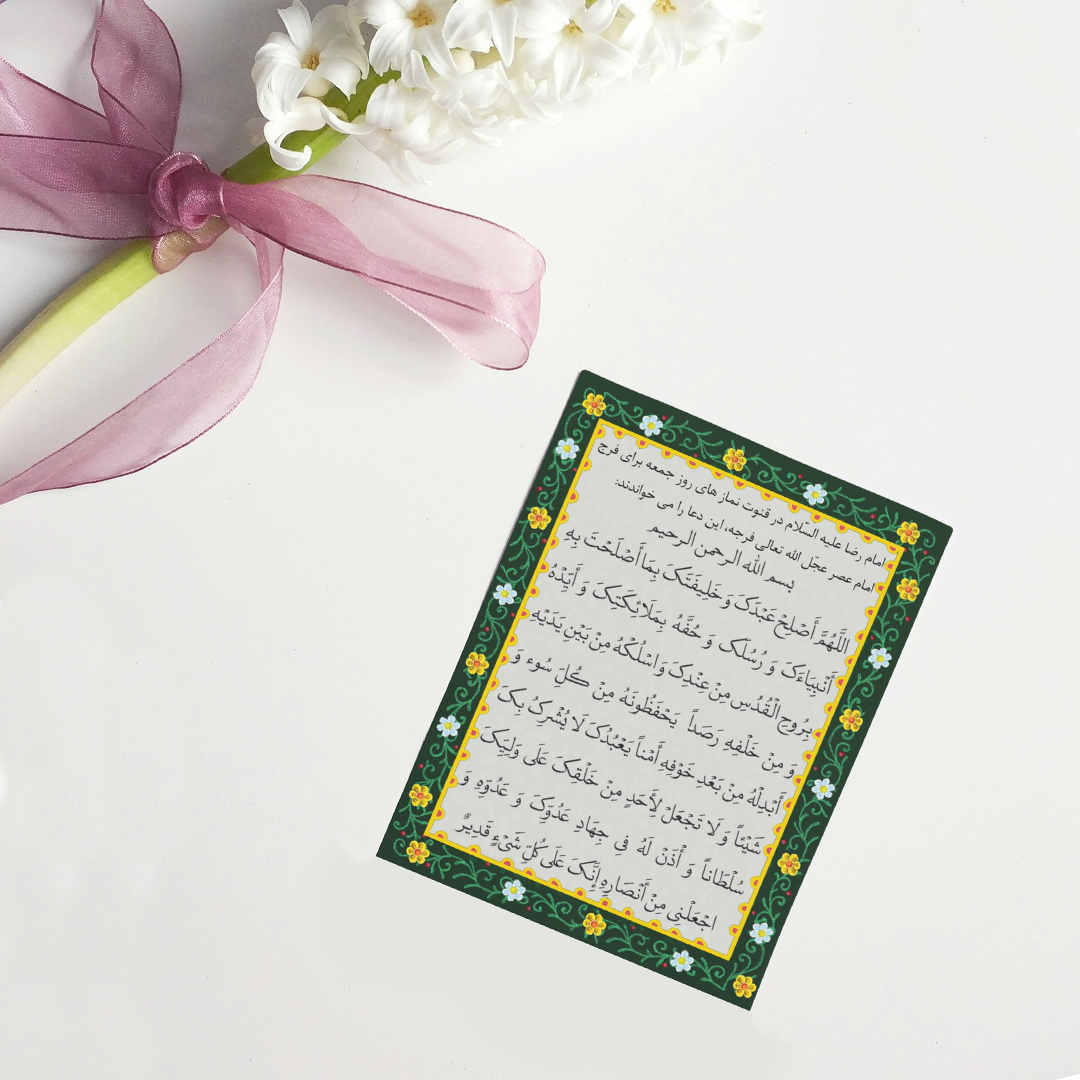 امام رضا علیه السّلام در قنوت نماز های روز جمعه برای فرج
امام عصر عجّل الله تعالی فرجه، این دعا را می خواندند:
بسم الله الرحمن الرحیم
اللَّهُمَّ أَصْلِحْ عَبْدَکَ وَ خَلِیفَتَکَ بِمَا أَصْلَحْتَ بِهِ
أَنْبِیَاءَکَ وَ رُسُلَکَ وَ حُفَّهُ بِمَلَائِکَتِکَ وَ أَیِّدْهُ
بِرُوحِ الْقُدُسِ مِنْ عِنْدِکَ وَ اسْلُکْهُ مِنْ بَیْنِ یَدَیْهِ
وَ مِنْ خَلْفِهِ رَصَداً یَحْفَظُونَهُ مِنْ کُلِّ سُوءٍ وَ
أَبْدِلْهُ مِنْ بَعْدِ خَوْفِهِ أَمْناً یَعْبُدُکَ لَا یُشْرِکُ بِکَ
شَیْئاً وَ لَا تَجْعَلْ لِأَحَدٍ مِنْ خَلْقِکَ عَلَی وَلِیِّکَ
سُلْطَاناً وَ أْذَنْ لَهُ فِی جِهَادِ عَدُوِّکَ وَ عَدُوِّهِ وَ
اجْعَلْنِی مِنْ أَنْصَارِهِ إِنَّکَ عَلَی کُلِّ شَیْءٍ قَدِیرٌ